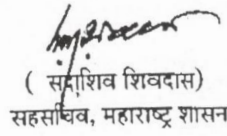 ( सदाशिव शिवदास)
सहसचिव, महाराष्ट्र शासन